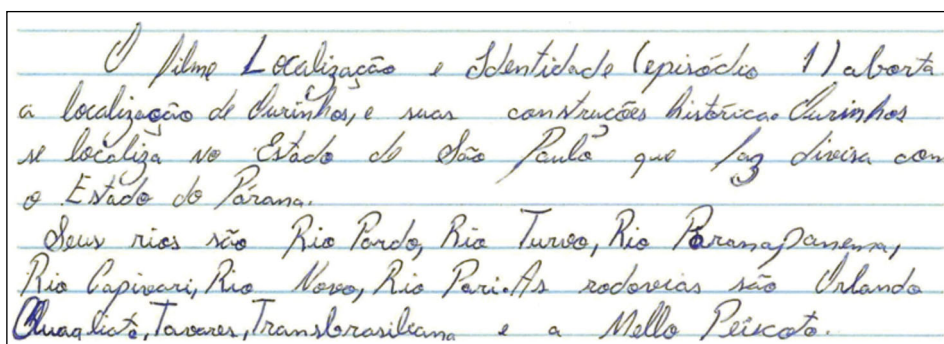 O filme Localização e Identidade (episódio 1) aborta
a localização de Ourinhos, e suas construções histórica. Ourinhos
se localiza no Estado de São Paulo que faz divisa com
o Estado do Párana.
Seus rios são Rio Pardo, Rio Turvo, Rio Paranapanema,
Rio Capivari, Rio Novo, Rio Pari. As rodovias são Orlando
Quagliato, Tavares, Transbrasiliana e a Mello Peixoto.